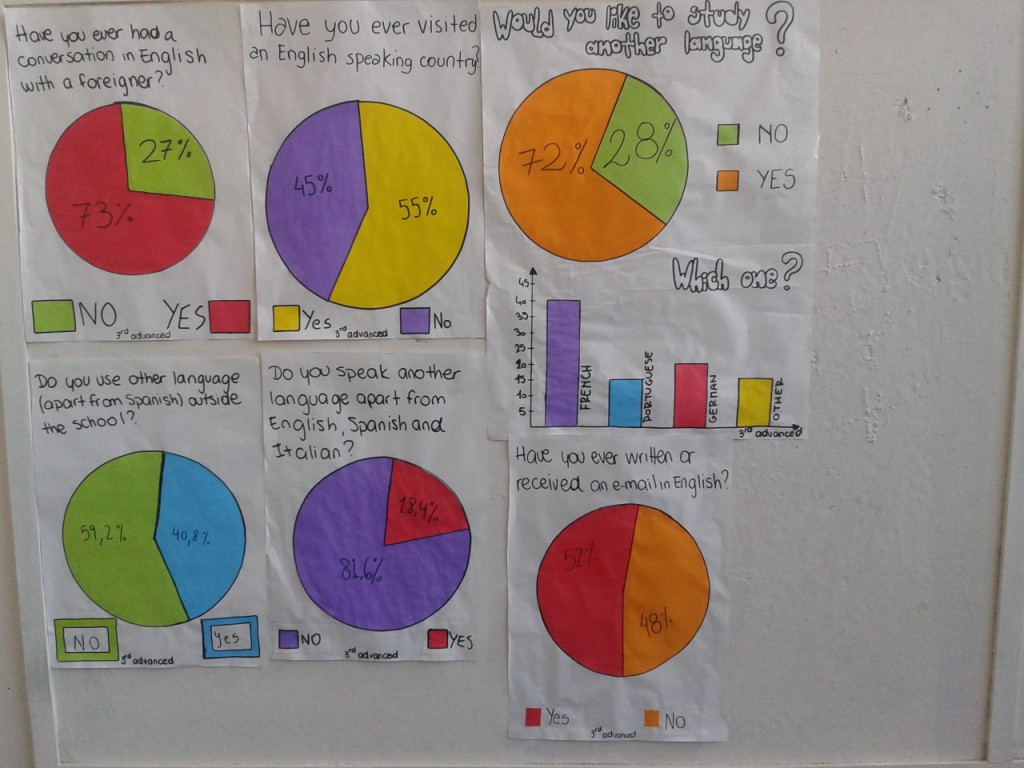 Have you ever had a
conversation in English
with a foreigner?
27%
73%
NO YES
3rd advanced
Have you ever visited
an English speaking country?
45%
55%
Yes No
3rd advanced
Would you like to study
another language?
72%
28%
NO
YES
Which one?
45
40
35
30
25
20
15
10
5
FRENCH
PORTUGUESE
GERMAN
OTHER
3rd advanced
Do you use other language
(apart from Spanish) outside
the school?
59,2%
40,8%
NO Yes
3rd advanced
Do you speak another
language apart from
English, Spanish and
Italian?
18,4%
81,6%
NO YES
3rd advanced
Have you ever written or
received an e-mail in English?
52%
48%
Yes No
3rd advanced